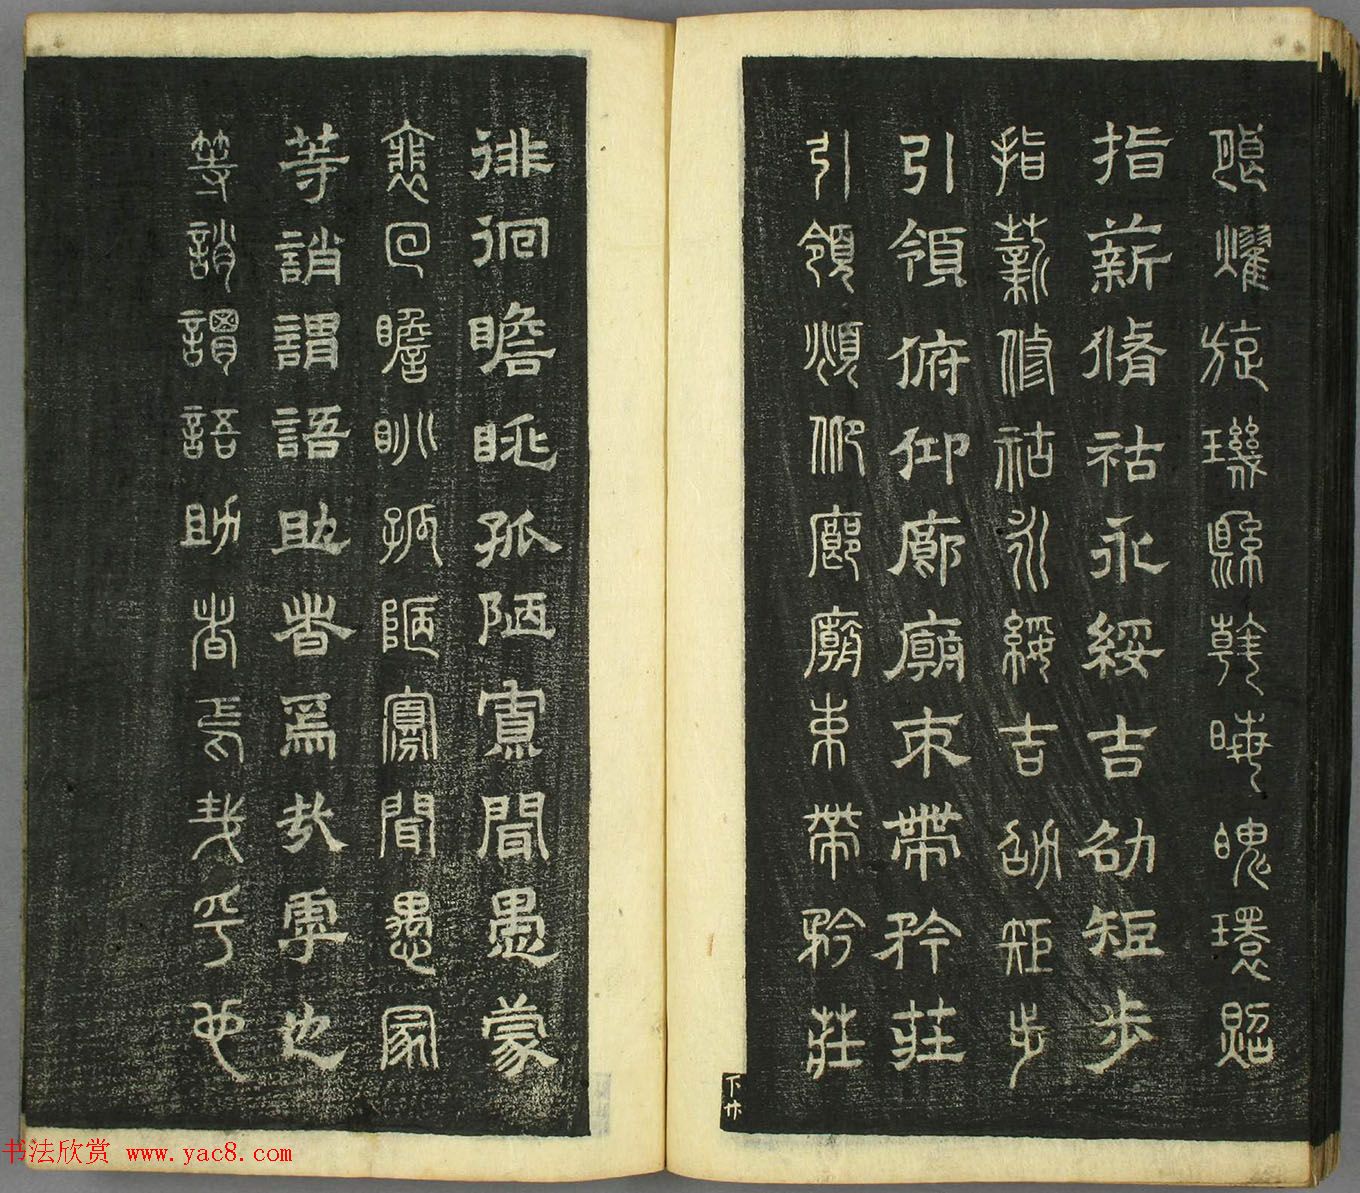 朗燿旋璣縣斡晦魄環照
指薪脩祜永綏吉劭矩步
指薪修祜永綏吉劭矩步
引領俯仰廊廟束帶矜莊
引領頫仰廊廟束帶矜莊
下廿
徘徊瞻眺孤陋寡聞愚蒙
裵回瞻眺孤陋寡聞愚冡
等誚謂語助者焉哉乎也
等誚謂語助者焉哉乎也
书法欣赏 www.yac8.com